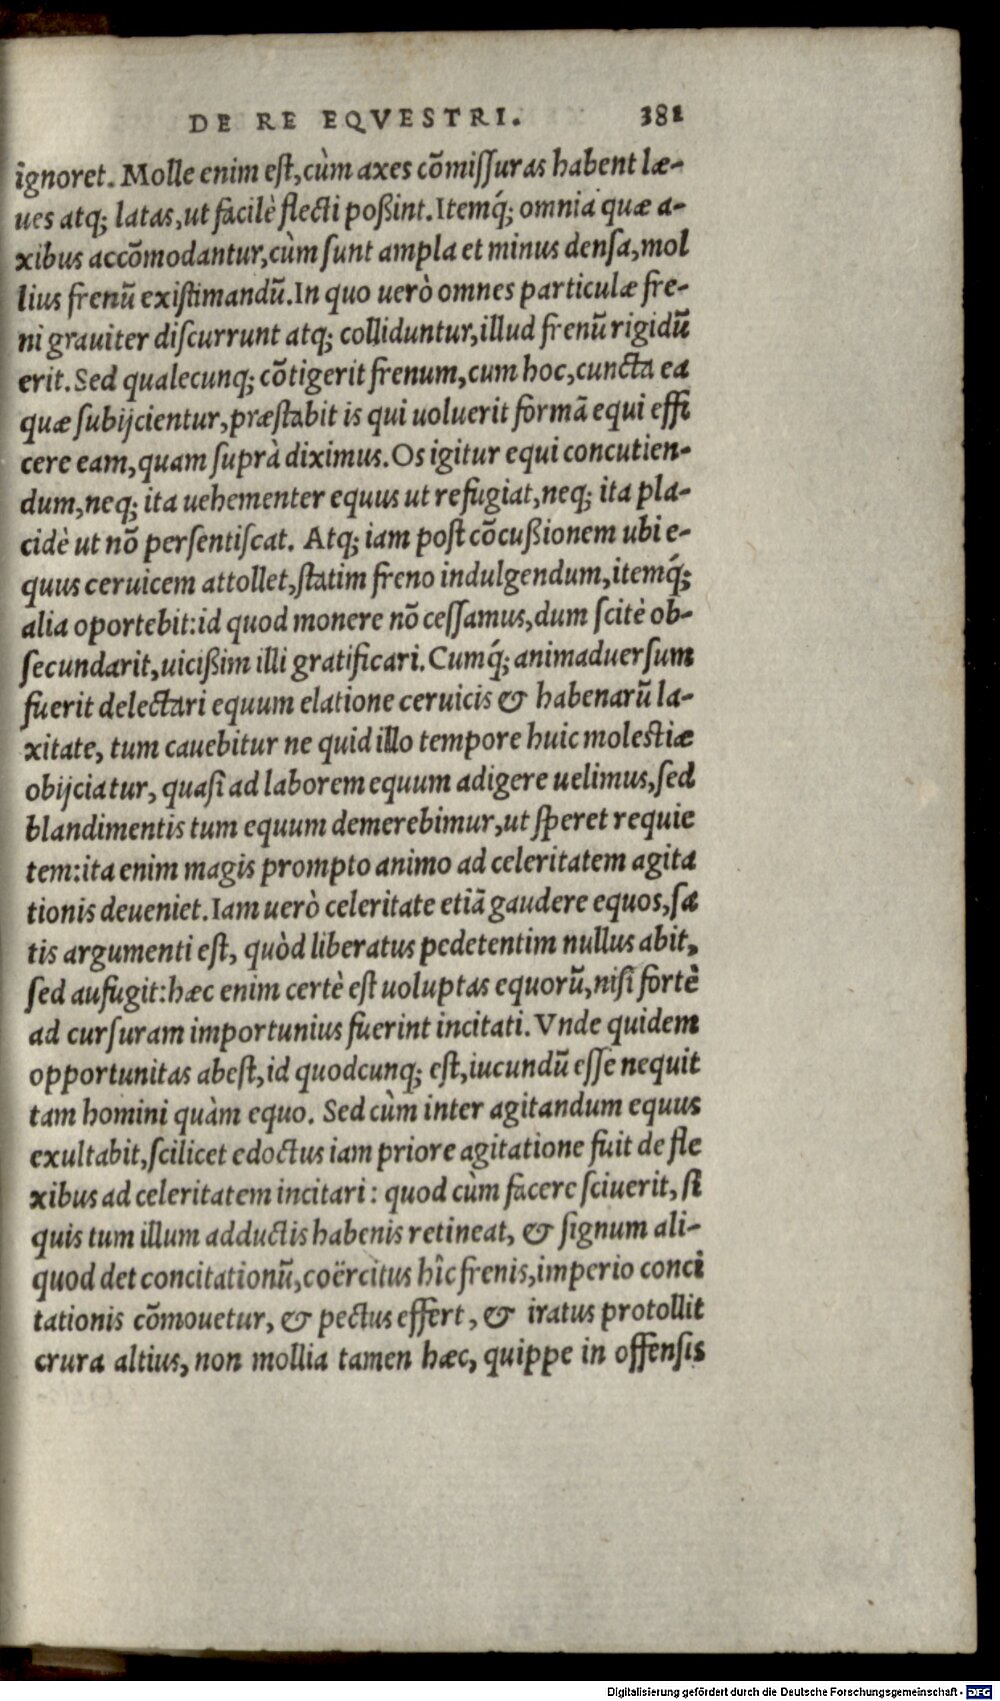 DE RE EQVESTRI. 381
ignoret. Molle enim eſt, cùm axes cõmiſſuras habent læ-
ues atq; latas, ut facilè flecti poßint. Itemq́; omnia quæ a-
xibus accõmodantur, cùm ſunt ampla et minus denſa, mol
lius frenũ exiſtimandũ. In quo uerò omnes particulæ fre-
ni grauiter diſcurrunt atq; colliduntur, illud frenũ rigidũ
erit. Sed qualecunq; cõtigerit frenum, cum hoc, cuncta ea
quæ ſubijcientur, præſtabit is qui uoluerit formã equi effi
cere eam, quam ſuprà diximus. Os igitur equi concutien-
dum, neq; ita uehementer equus ut refugiat, neq; ita pla-
cidè ut nõ perſentiſcat. Atq; iam poſt cõcußionem ubi e-
quus ceruicem attollet, ſtatim freno indulgendum, itemq́;
alia oportebit: id quod monere nõ ceſſamus, dum ſcitè ob-
ſecundarit, uicißim illi gratificari. Cumq́; animaduerſum
fuerit delectari equum elatione ceruicis & habenarũ la-
xitate, tum cauebitur ne quid illo tempore huic moleſtiæ
obijciatur, quaſi ad laborem equum adigere uelimus, ſed
blandimentis tum equum demerebimur, ut ſperet requie
tem: ita enim magis prompto animo ad celeritatem agita
tionis deueniet. Iam uerò celeritate etiã gaudere equos, ſa
tis argumenti eſt, quòd liberatus pedetentim nullus abit,
ſed aufugit: hæc enim certè eſt uoluptas equorũ, niſi fortè
ad curſuram importunius fuerint incitati. Vnde quidem
opportunitas abeſt, id quodcunq; eſt, iucundũ eſſe nequit
tam homini quàm equo. Sed cùm inter agitandum equus
exultabit, ſcilicet edoctus iam priore agitatione fuit de fle
xibus ad celeritatem incitari: quod cùm facere ſciuerit, ſi
quis tum illum adductis habenis retineat, & ſignum ali-
quod det concitationũ, coërcitus hîc frenis, imperio conci
tationis cõmouetur, & pectus effert, & iratus protollit
crura altius, non mollia tamen hæc, quippe in offenſis
Digitalisierung gefördert durch die Deutsche Forschungsgemeinschaft - DFG